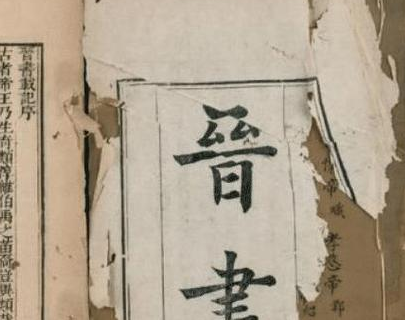 帝熾 孝愍帝
晉書
晉書載記序
古者帝王乃生奇類淳維伯禹之苗裔豈異類